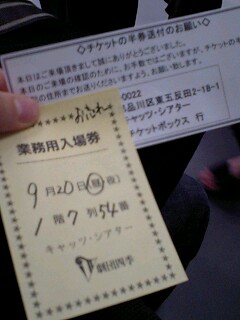 ◇チケットの半券送付のお願い◇
本日はご来場頂きまして誠にありがとうございました。
本日のご来場の確認のために、お手数ではございますが、チケットの半
の住所までお送りくださいますよう、お願い致します。
-0022
品川区東五反田2-18-1
キャッツ・シアター
チケットボックス 行
業務用入場券
9月20日(昼)夜)
1階7列54番
キャッツ・シアター
劇団四季